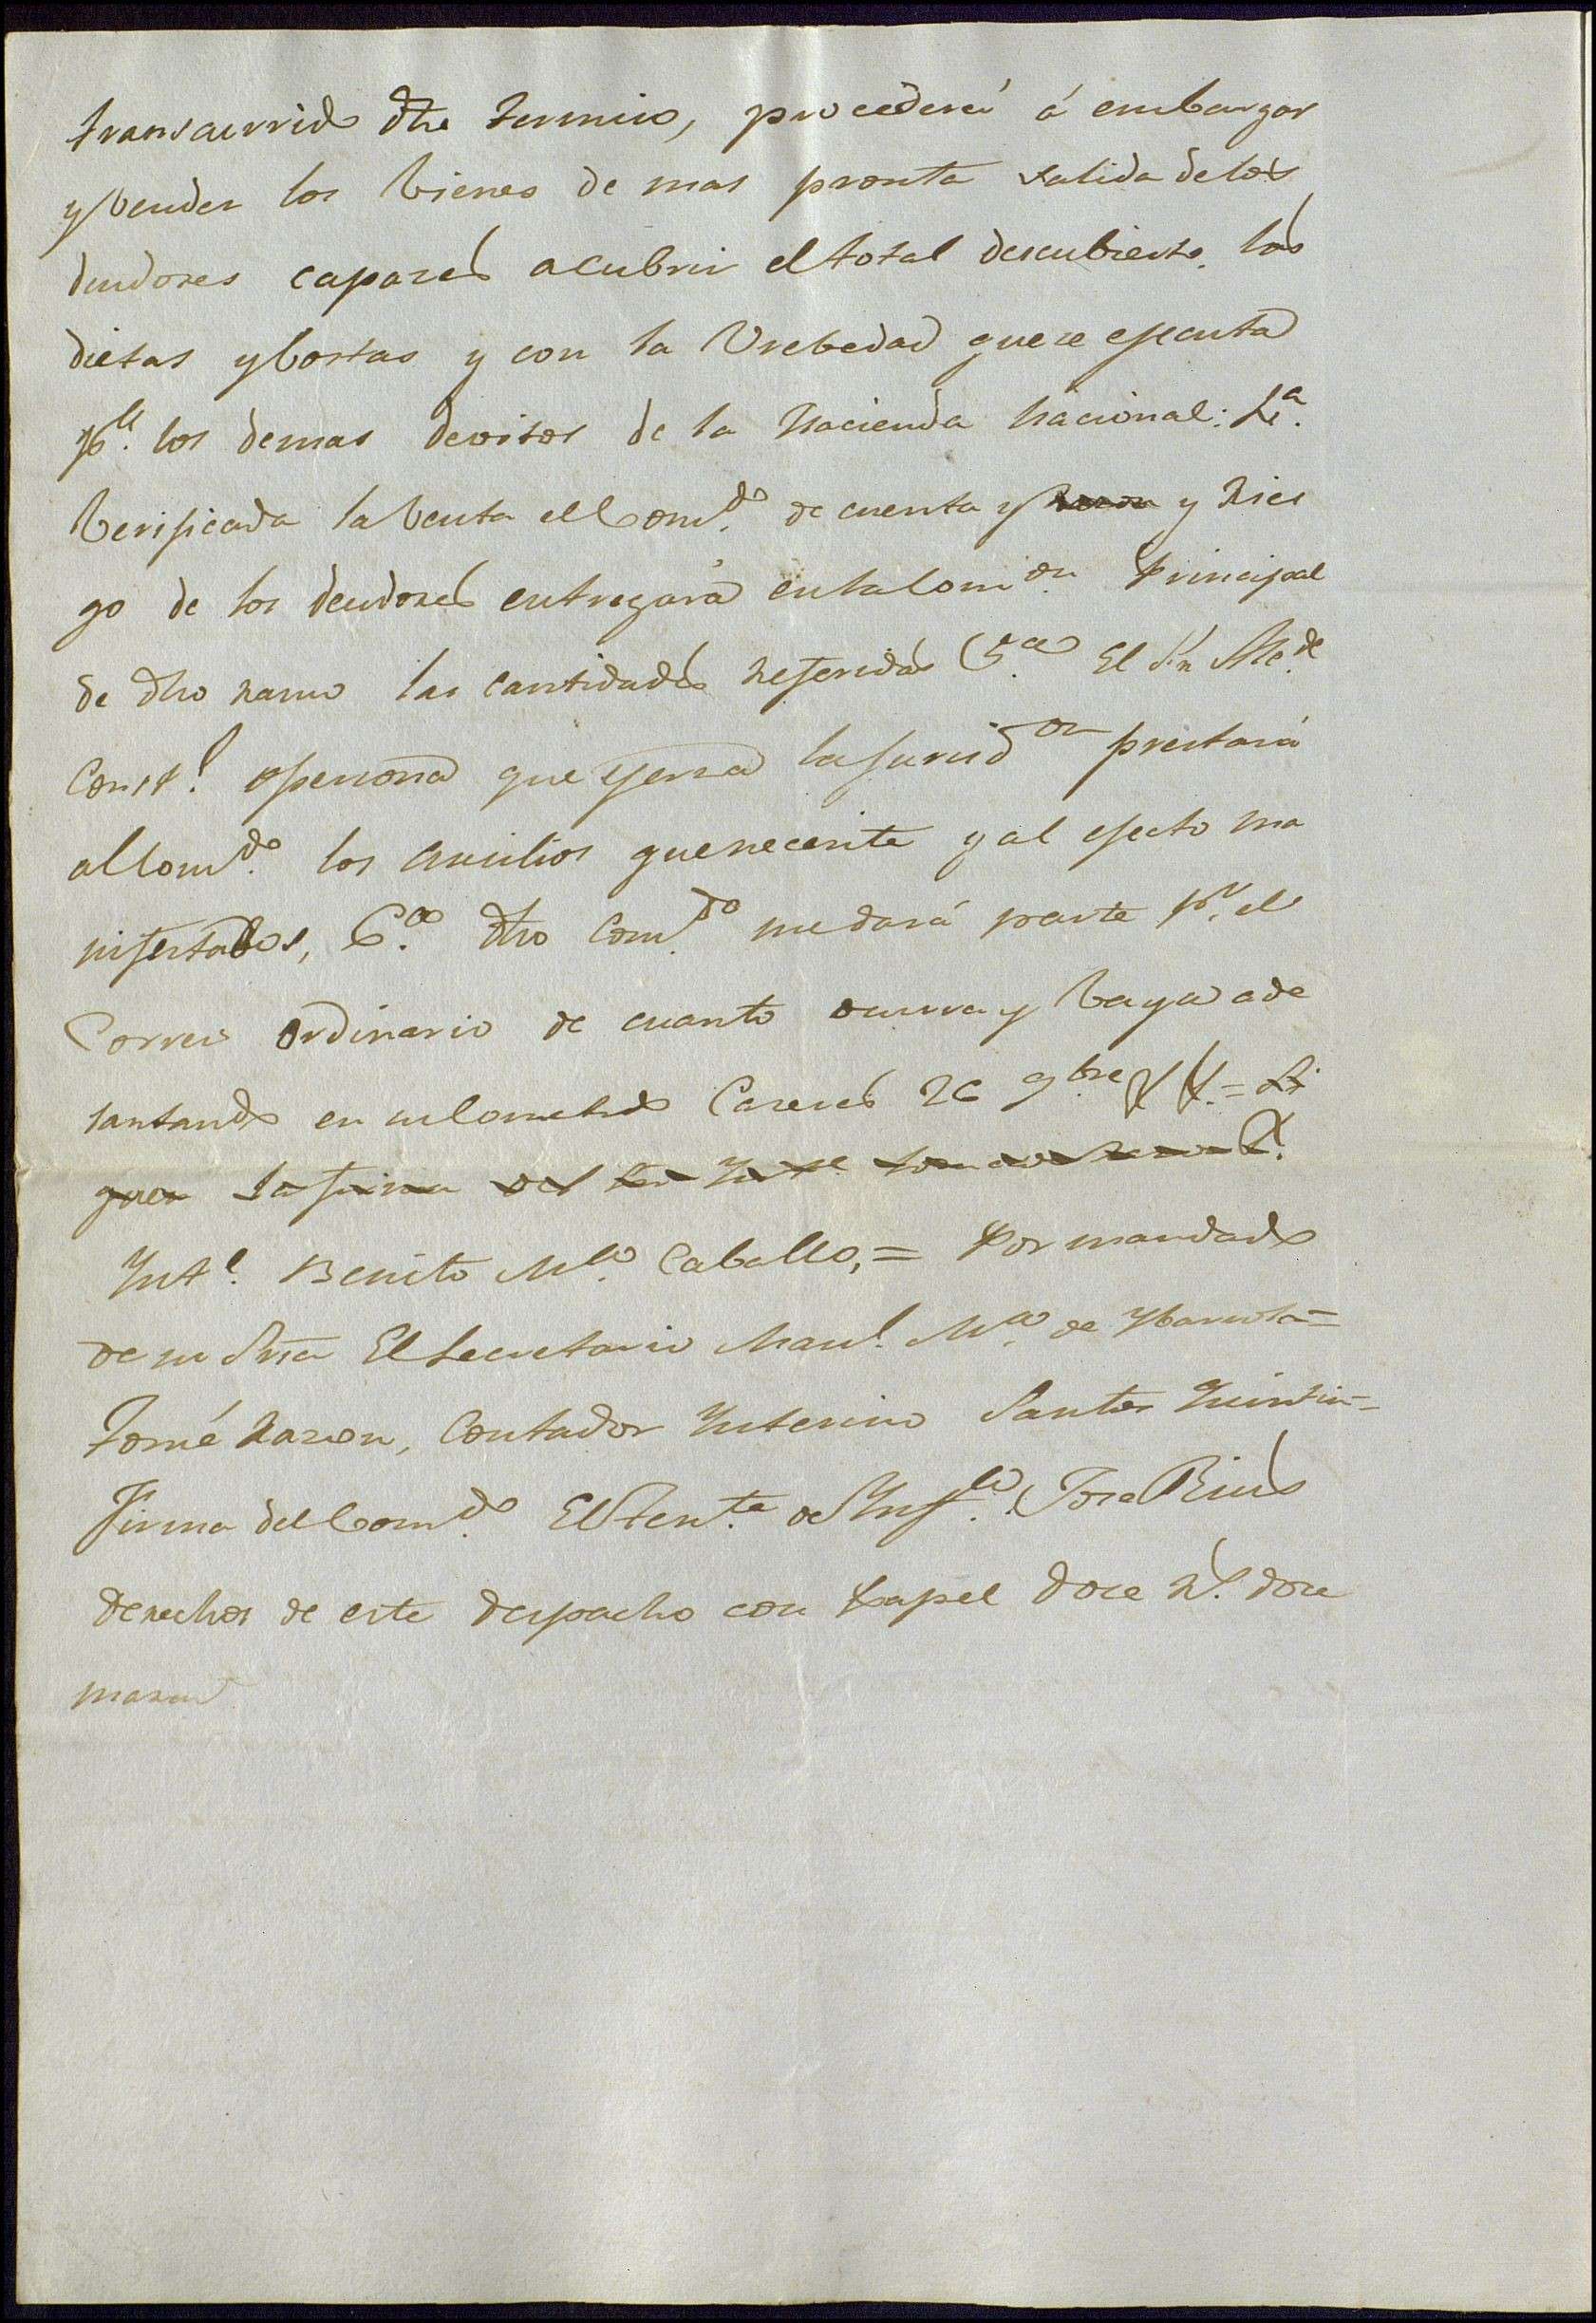 transcurrido dho termino, procederá á embargar
y bender los bienes de mas pronta salida de los
deudores capazes a cubrir el total descubierto, las
dietas y costas y con la brebedad que se ejecuta
pª. los demas devitos de la Hacienda Nacional: 4ª.
Berificada la benta el Comdº. de cuenta y y ries
go de los deudores entregará en la Comion. Principal
de dho ramo las cantidades referidas 5ª. El Sr. Alcde.
Constl. o persona que ejersa la Jurisdon. prestará
al Comdo. los ausilios que necesite y al efecto ma
nifestados, 6ª. dho Comdo. me dará parte pr. el
Correo ordinario de cuanto ocurra y baya ade
lantando en su cometido Cazeres 26 9bre =
la firma del Sr Inte
Intl. Benito Mª. Caballo, = Por mandado
de su Sria El Secretario Manl. Mª. de =
Tomé razon, Contador Interino Santos Quintin =
Firma del Comdo. El Stente. de Infª. Jose Rius
derechos de este despacho con papel doce rs. doce